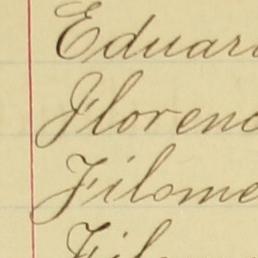 Eduar
Floren
Filome
Fil